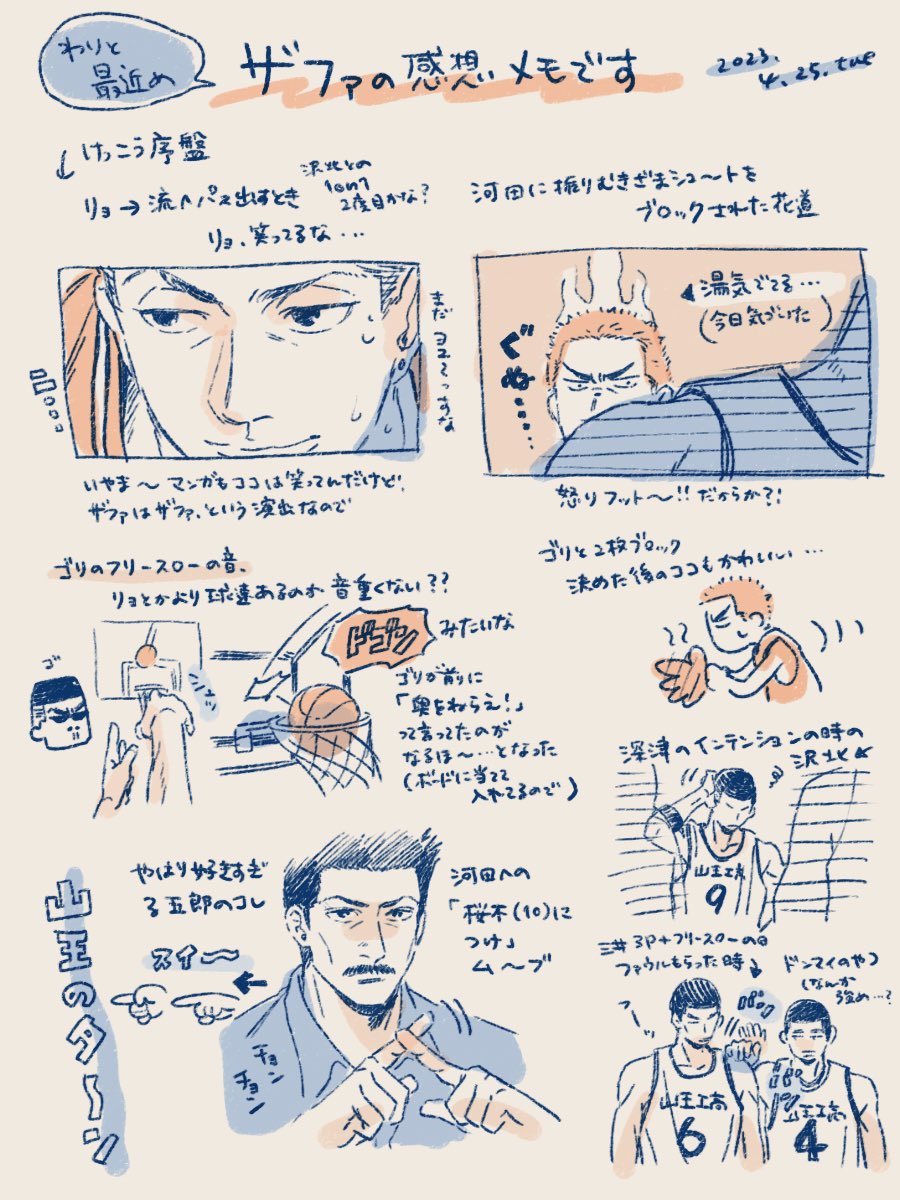 わりと
最近め
ザファの感想メモです
2023.
4.25.tue
けっこう序盤
リョ→流へパス出すとき
沢北との
1on1
2度目かな?
リョ、笑ってるな...
まだ ヨユそっすな
いやま〜マンガもココは笑ってんだけど!
ザファはザファ、という演出なので
河田に振りむきざまシュートを
ブロックされた花道
湯気でてる...
(今日気づいた)
ぐぬ...
怒りフット〜!!だからか?!
ゴリのフリースローの音、
リョとかより球速あるのか音重くない??
ゴ
シュッ
ドゴン
みたいな
ゴリが前に
「奥をねらえ!」
って言ってたのが
なるほ〜...となった
(ボードに当てて
入れてるので)
ゴリと2枚ブロック
決めた後のココもかわいい...
深津のインテンションの時の
沢北
山王工高
9
山王のターン
やはり好きすぎ
る五郎のコレ
スイ〜
チョン
チョン
河田への
「桜木(10)に
つけ」
ム〜ブ
三井3P+フリースローの日
ファウルもらった時
フーッ
山王工高
6
ドンマイのやつ
(なんか
強め...?
山王工高
4